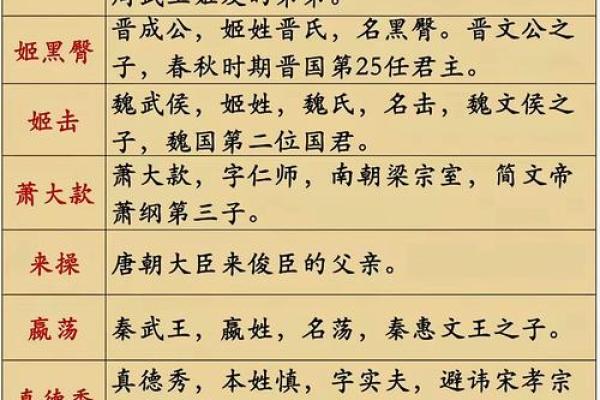 周武王姬发的弟弟。
姬黑臀
晋成公，姬姓晋氏，名黑臀。晋文公之
子，春秋时期晋国第25任君主。
姬击
魏武侯，姬姓，魏氏，名击，魏文侯之
子，魏国第二位国君。
萧大款
萧大款，字仁师，南朝梁宗室，简文帝
萧纲第三子。
来操
唐朝大臣来俊臣的父亲。
嬴荡
秦武王，嬴姓，名荡，秦惠文王之子。
真德秀
真德秀，本姓慎，字实夫，避讳宋孝宗